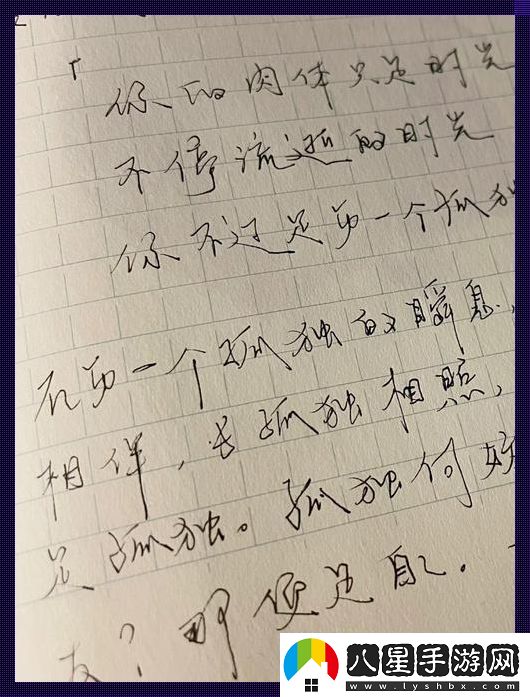 「
你的肉体只是时光
不停流逝的时光
你不过是每一个孤独
在每一个孤独的瞬息,
相伴,与孤独相照,
是孤独。孤独何好
友?那便是自己.
八星手游网
www.lyshbx.com